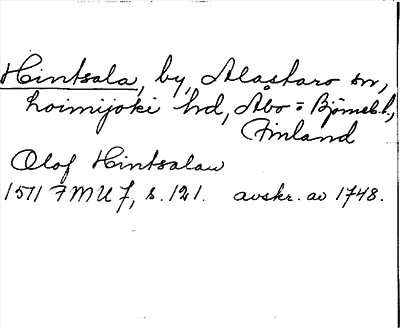 Hintsala, by, Alastaro sn,
Loimijoki hd, Åbo = Björneb. l.,
Finland
Olof Hintsalaw
1511 FMU 7, s. 121. avskr. av 1748.